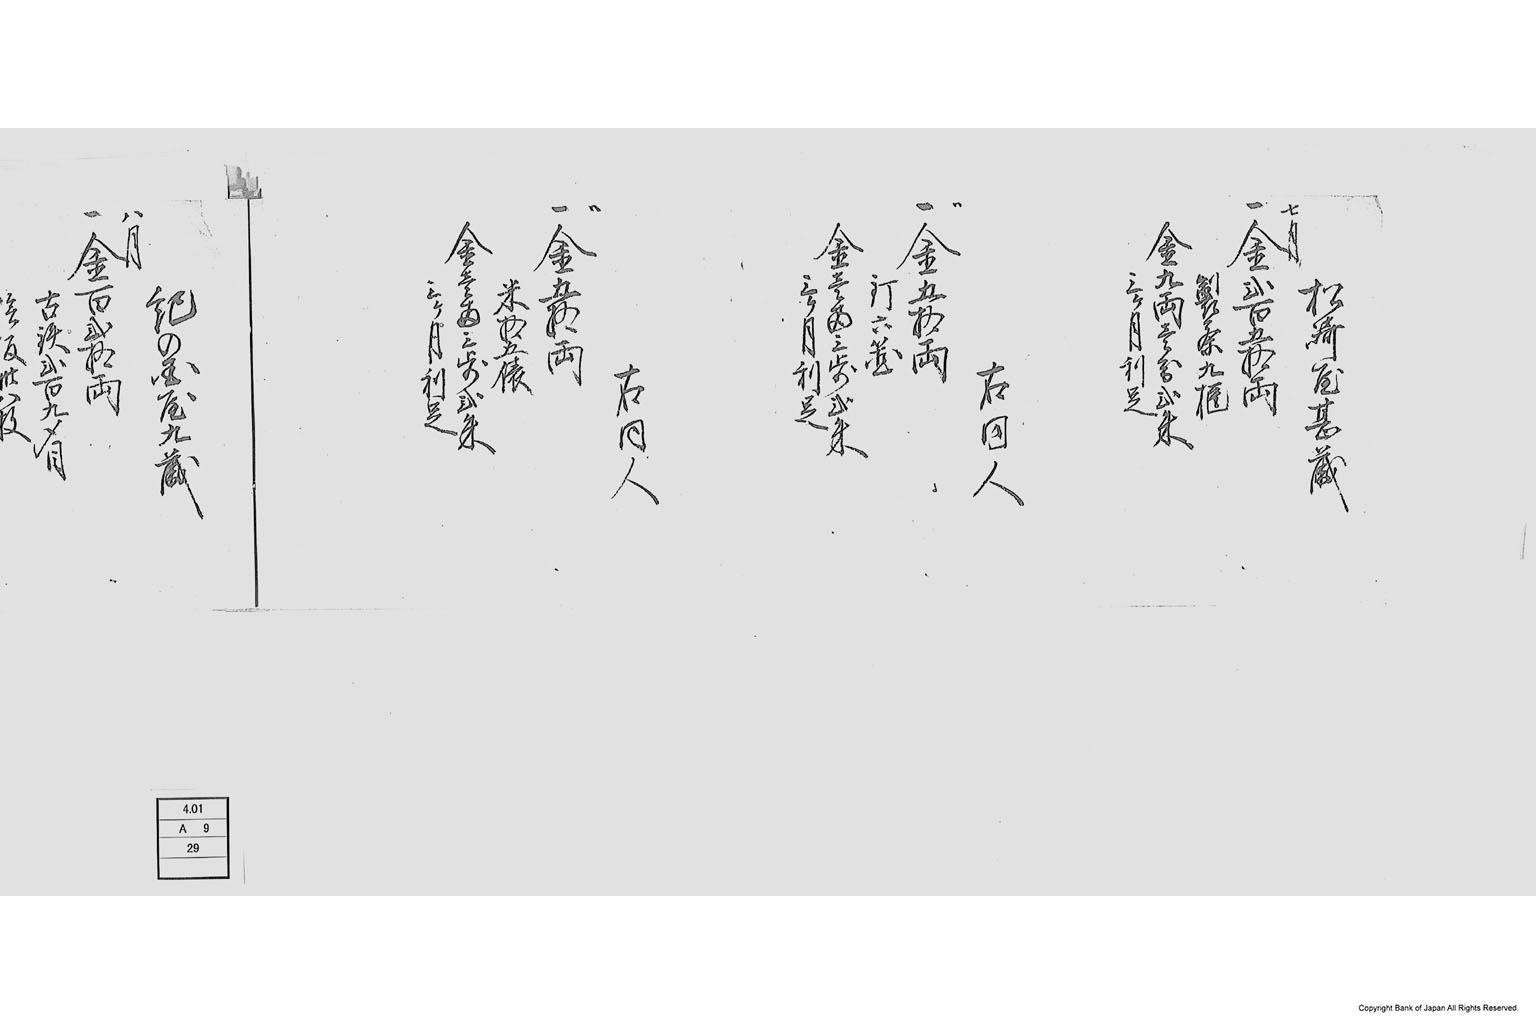 七月
松嶋屋甚蔵
一金弐百五拾両
製茶九櫃
金九両壱分弐朱
三ヶ月利足
右同人
〃
一金五拾両
釘六箇
金壱両三歩弐朱
三ヶ月利足
右同人
〃
一金五拾両
米拾五俵
金壱両三歩弐朱
三ヶ月利足
紀の国屋九蔵
八月
一金百弐拾両
古鉄弐百九〆目
4.01
A 9
29
Copyright Bank of Japan All Rights Reserved.